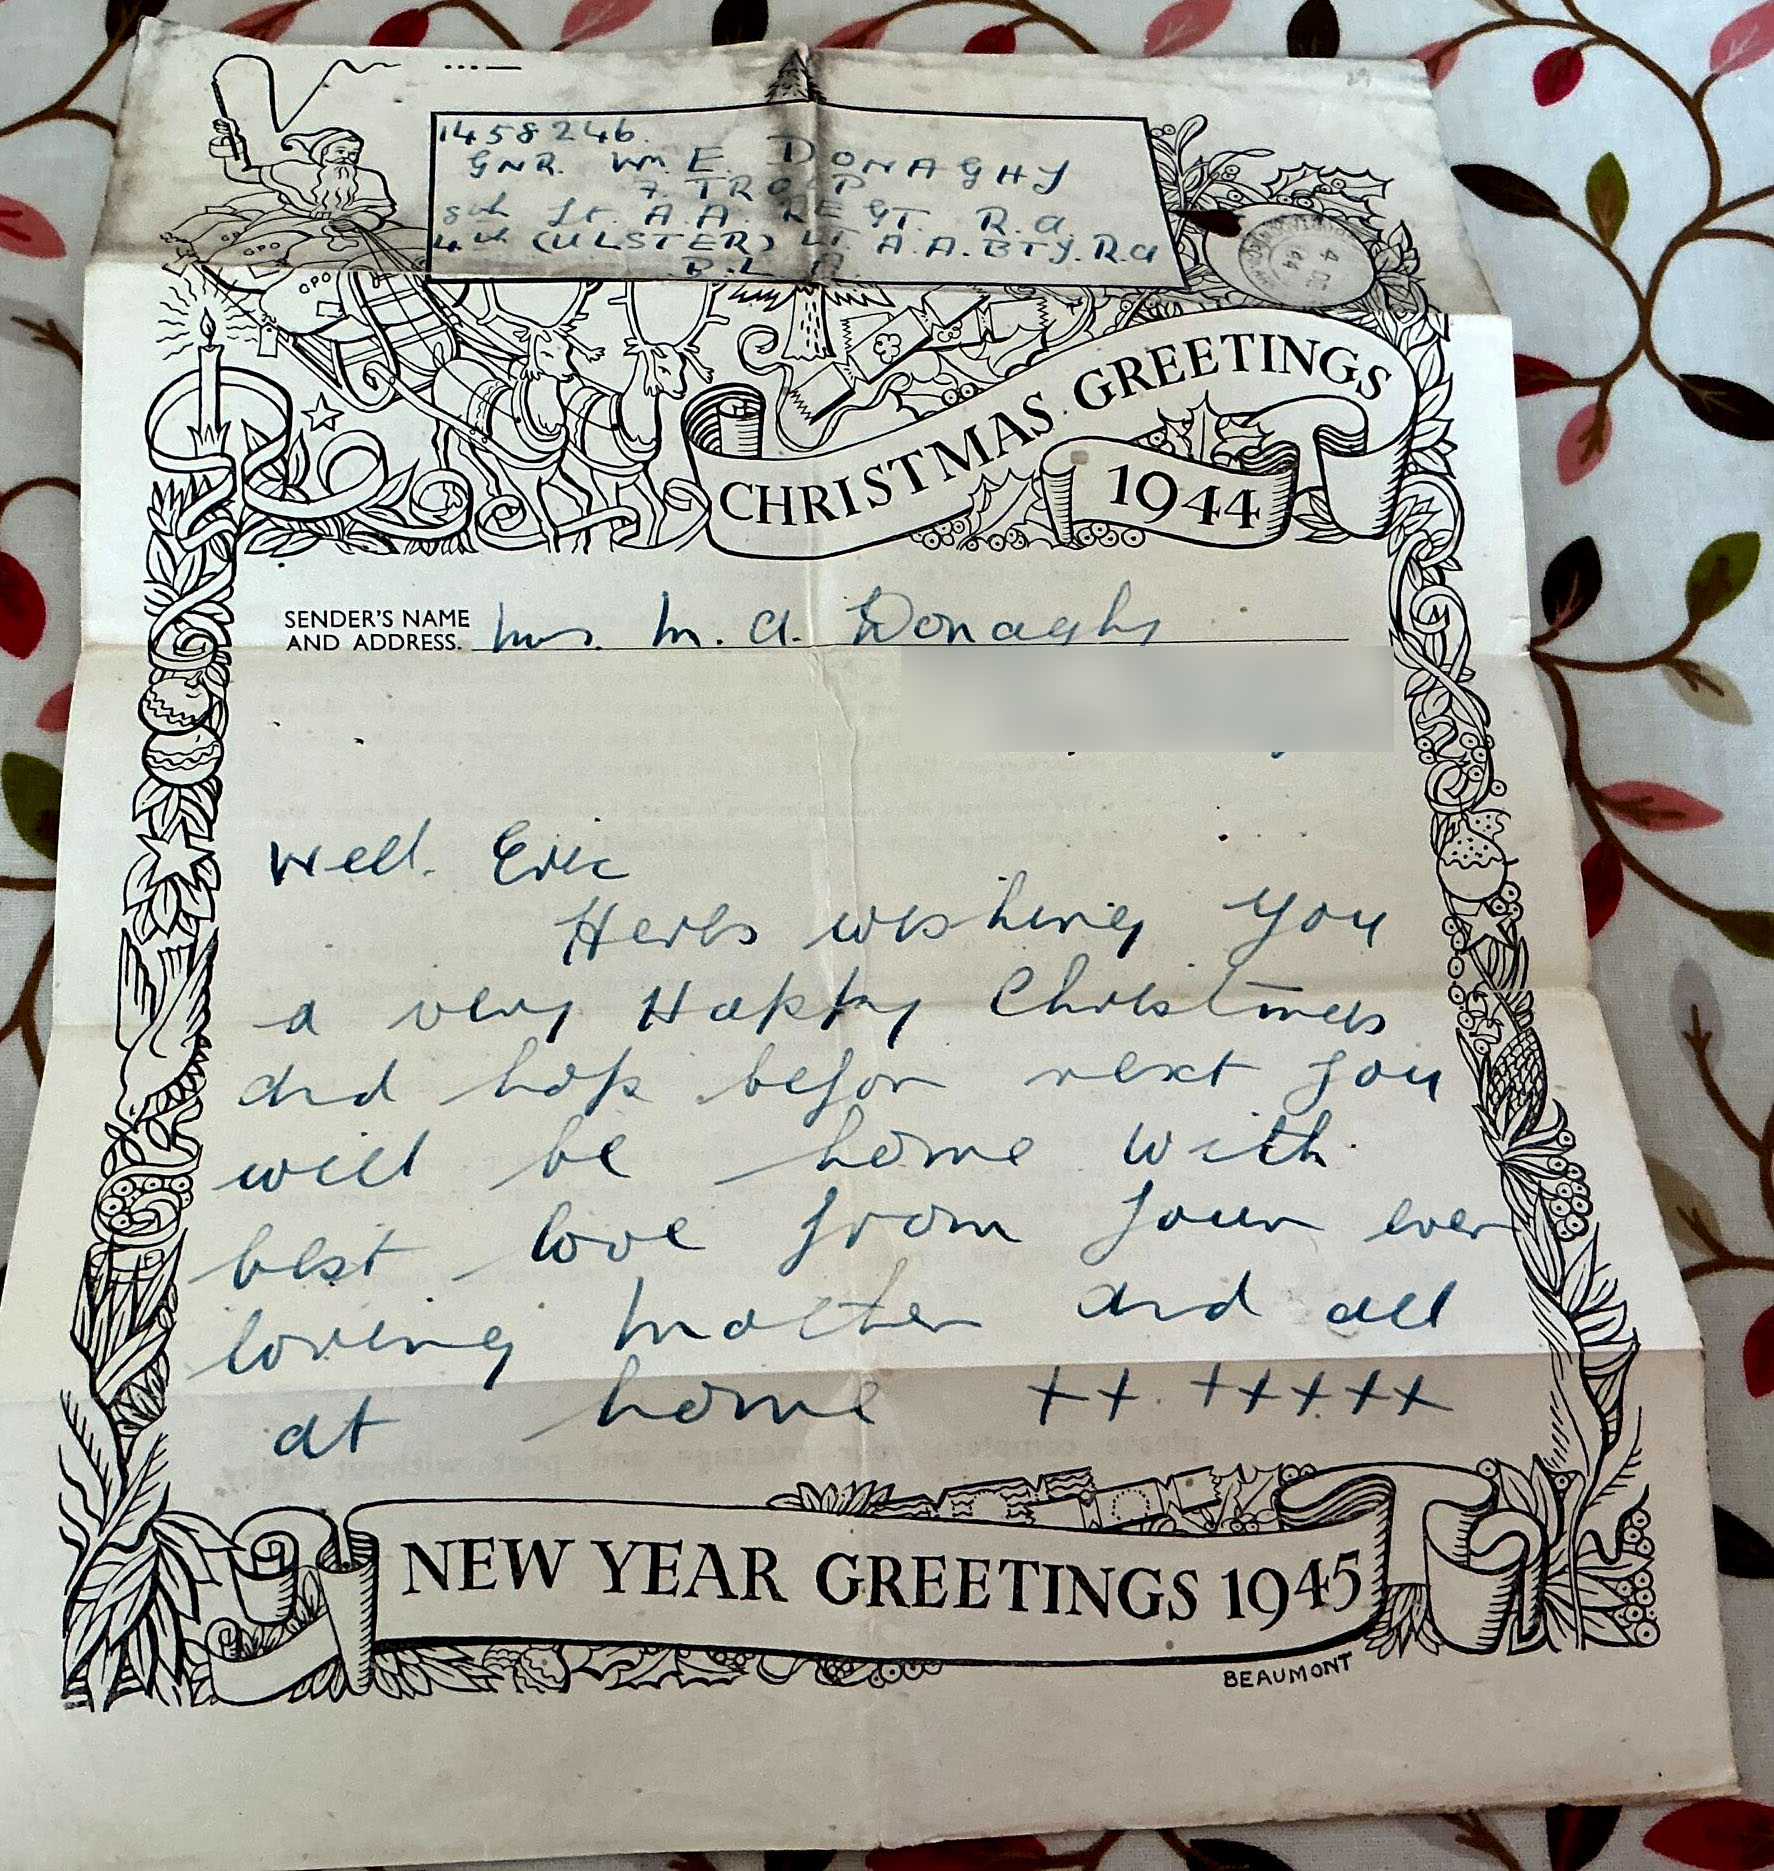 1458246.
GNR. Wm. E. DONAGHY
7. TROOP
8th Lt. A.A. REGT. R.A.
4th (ULSTER) LT. A.A. BTY. R.A
B.L.A.
GPO GPO
GPO
4 DE
44
CHRISTMAS GREETINGS
1944
SENDER'S NAME
AND ADDRESS. Mrs. M. A. Donaghy
Well. Eric
Heres wishing you
a very Happy Christmas
and hope befor next you
will be home with
best love from your ever
loving Mother and all
at home ++ +++++
please complete your message and post without delay.
NEW YEAR GREETINGS 1945
BEAUMONT